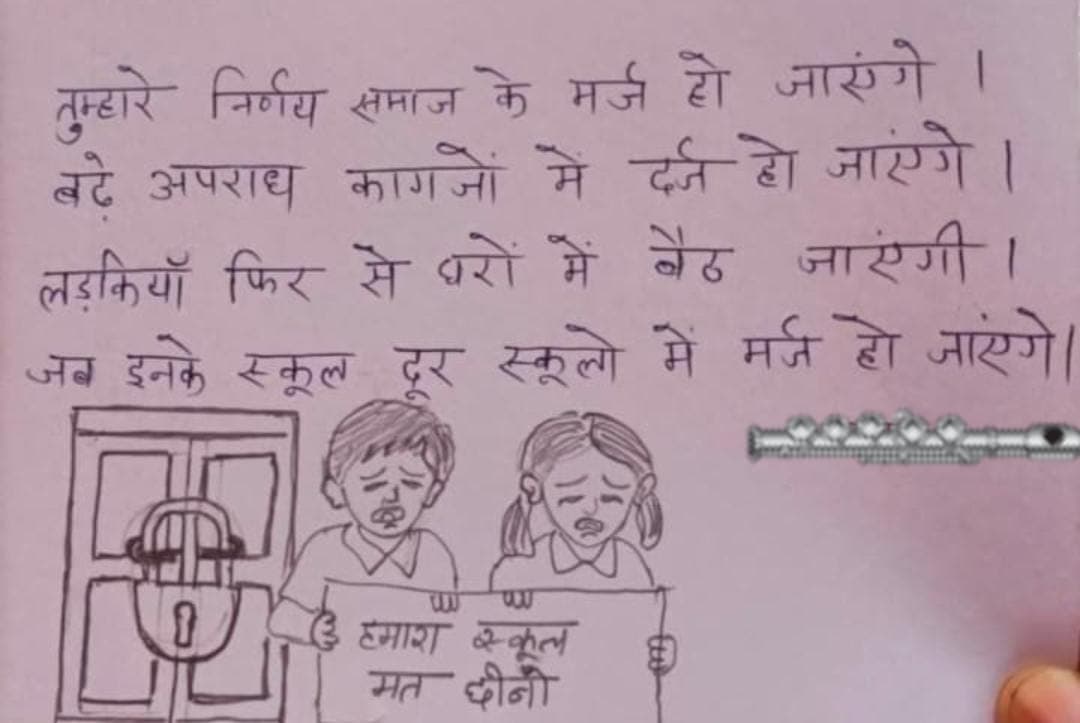 तुम्हारे निर्णय समाज के मर्ज हो जाएंगे ।
बढ़े अपराध कागजों में दर्ज हो जाएंगे ।
लड़कियाँ फिर से घरों में बैठ जाएंगी ।
जब इनके स्कूल दूर स्कूलो में मर्ज हो जाएंगे।
हमारा स्कूल
मत छीनो